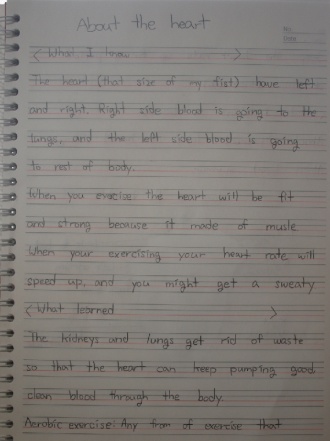 About the heart
< What I know >
The heart (that size of my fist) have left
and right. Right side blood is going to the
lungs, and the left side blood is going
to rest of body.
When you the heart will be fit
and strong because it made of musle
When your exercising your heart rate will
speed up, and you might get a sweaty
< What learned >
The kidneys and lungs get rid of waste
so that the heart can keep pumping good
clean blood through the body
Aerobic exercise: Any from of exercise that